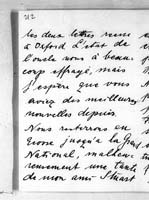 les deux lettres
à Oxford L'état de
l'oncle m'a beau-
corp effrayé, mais
j'espère que vous
aviez des meilleures
nouvelles depuis.
Nous resterons en
jusqu'à la fin
National, malheu-
reusement une tante
de mon ami Stuart